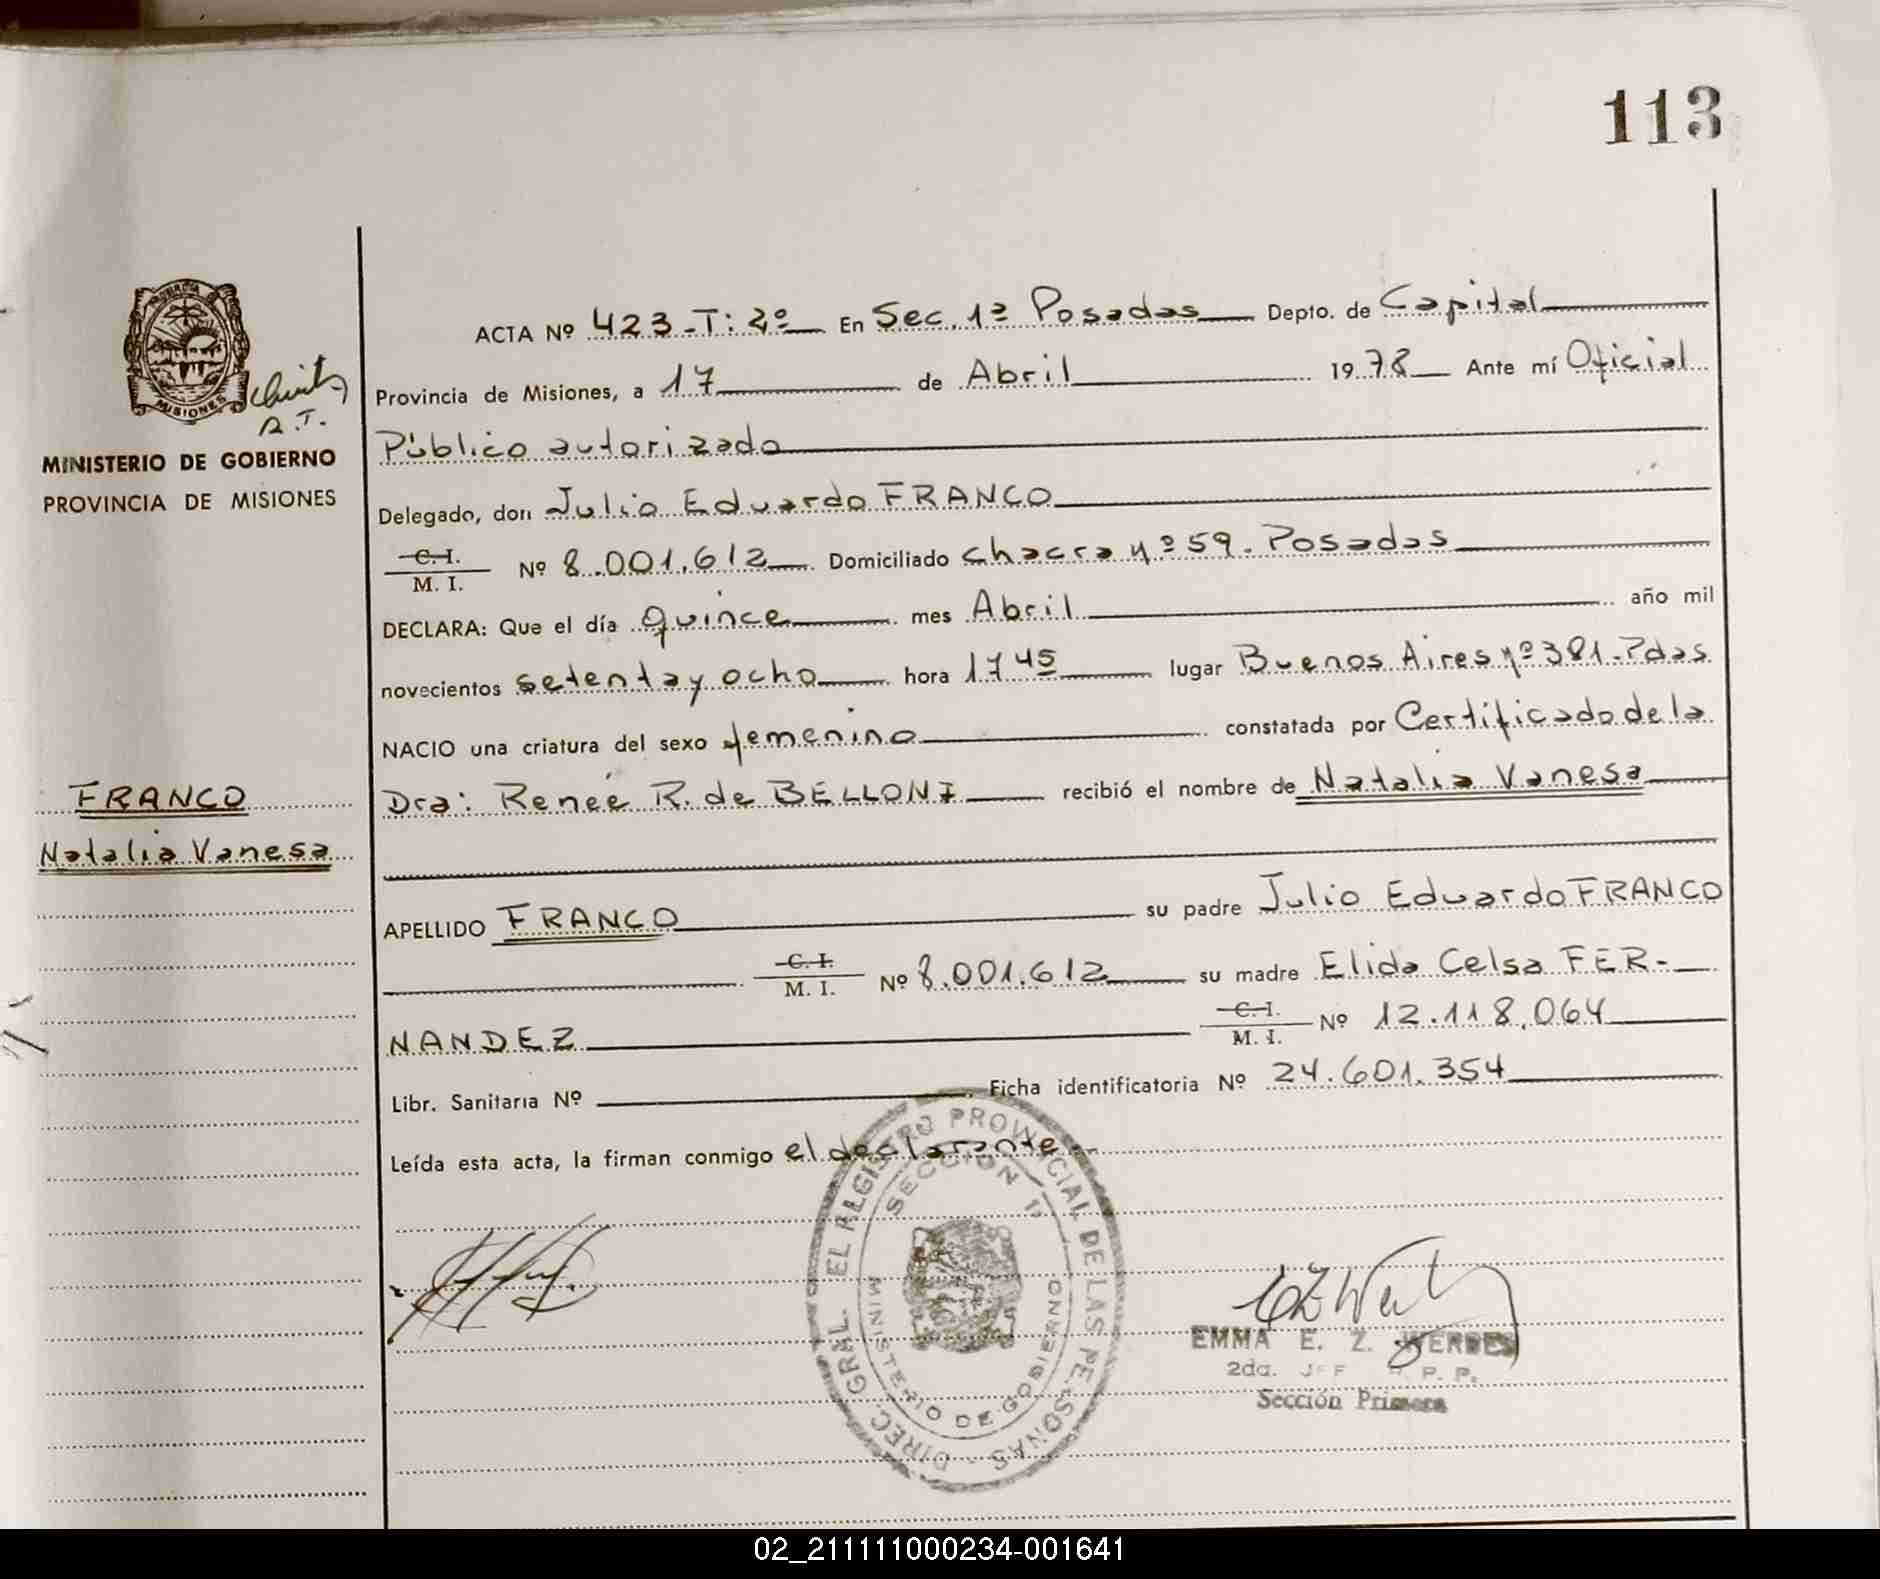 113
PROVINCIA
MISIONES
MINISTERIO DE GOBIERNO
PROVINCIA DE MISIONES
FRANCO
Natalia Vanesa
ACTA Nº 423-T: 2º En Sec. 1ª Posadas Depto. de Capital
Provincia de Misiones, a 17 de Abril 1978 Ante mí Oficial
Público autorizado
Delegado, don Julio Eduardo FRANCO
C. I.
M. I. Nº 8.001.612 Domiciliado chacra nº 59. Posadas
DECLARA: Que el día quince mes Abril año mil
novecientos setenta y ocho hora 17 45 lugar Buenos Aires nº 381-Pdas
NACIO una criatura del sexo femenino constatada por Certificado de la
Dra: Reneé R. de BELLONI recibió el nombre de Natalia Vanesa
APELLIDO FRANCO su padre Julio Eduardo FRANCO
C. I.
M. I. Nº 8.001.612 su madre Elida Celsa FER-
NANDEZ C. I.
M. I. Nº 12.118.064
Libr. Sanitaria Nº Ficha identificatoria Nº 24.601.354
Leída esta acta, la firman conmigo el declarante
DIREC. GRAL. EL REGISTRO PROVINCIAL DE LAS PERSONAS
SECCION 1ª
MINISTERIO DE GOBIERNO
EMMA E. Z. WERBES
2da. P. P.
Sección Primera
02_211111000234-001641